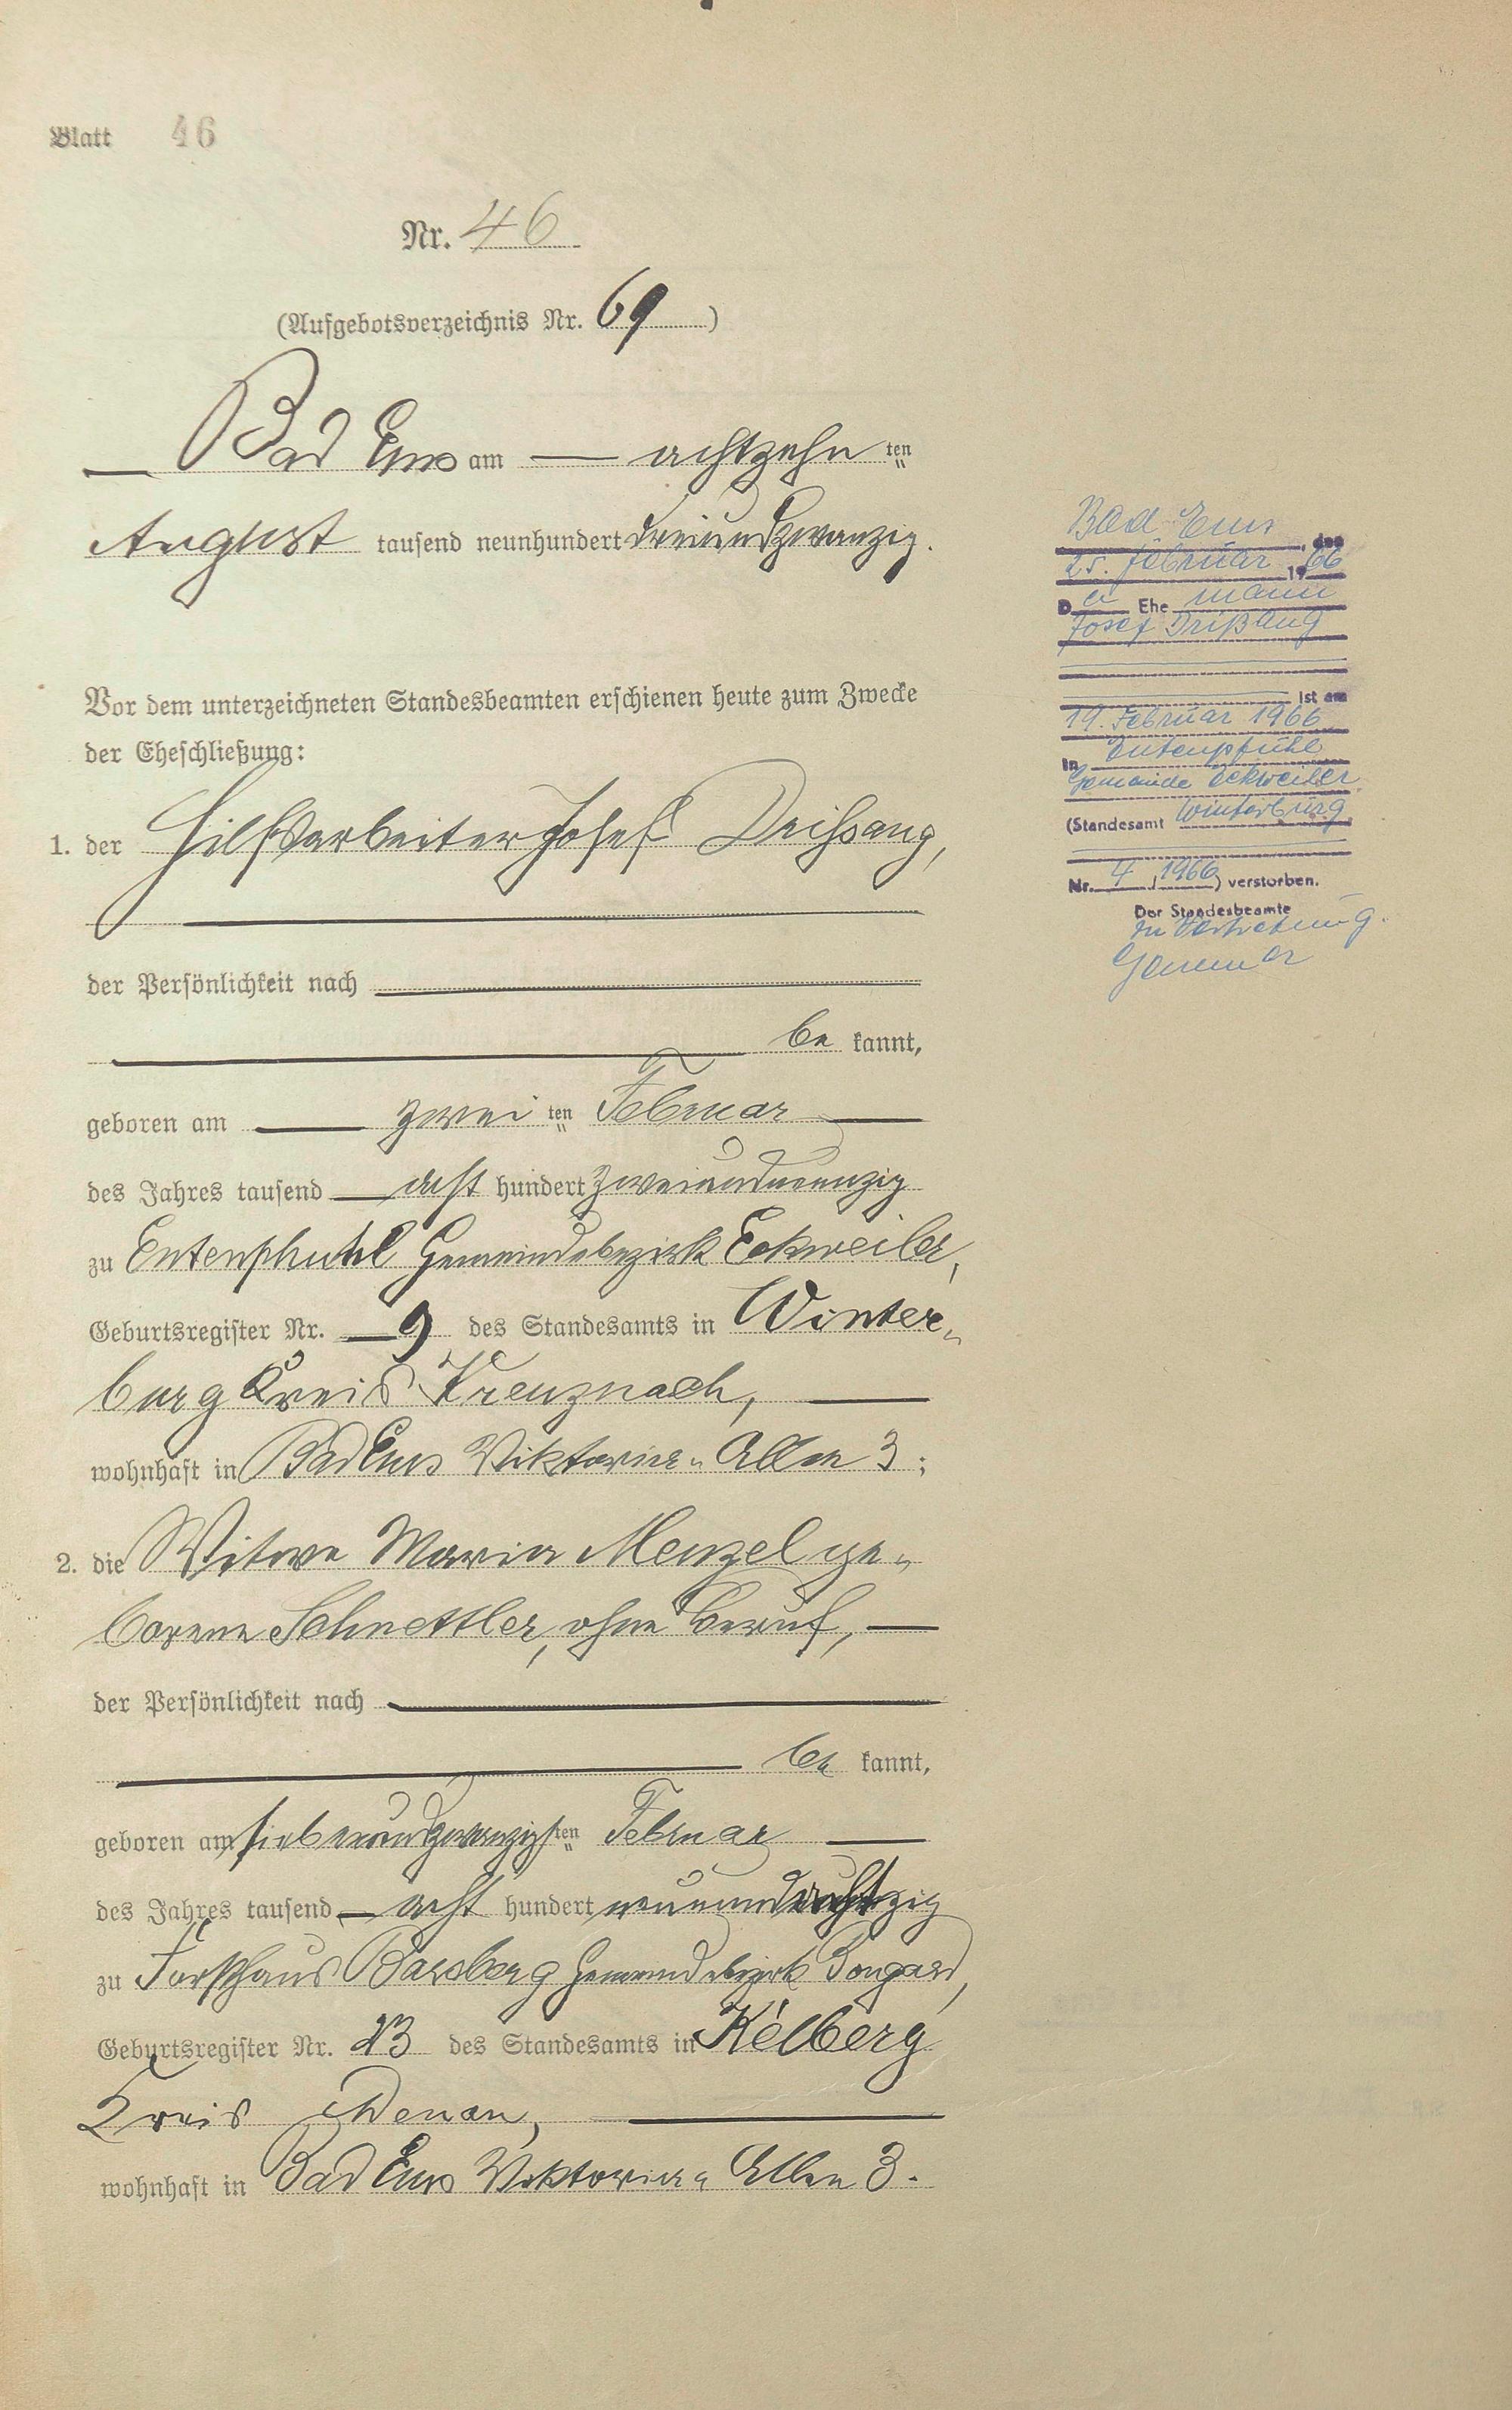 Blatt 46
Nr. 46
(Aufgebotsverzeichnis Nr. 69)
Bad Ems am achtzehn ten
August tausend neunhundert dreiundzwanzig.
Vor dem unterzeichneten Standesbeamten erschienen heute zum Zwecke
der Eheschließung:
1. der Hilfsarbeiter Josef Drißang,
der Persönlichkeit nach
be kannt,
geboren am zwei ten Februar
des Jahres tausend acht hundert zweiundneunzig
zu Entenphuhl Gemeindebezirk Eckweiler,
Geburtsregister Nr. 9 des Standesamts in Winter„
burg Kreis Kreuznach,
wohnhaft in Bad Ems Viktoria„Allee 3;
2. die Witwe Maria Menzel ge„
borene Schnettler, ohne Beruf,
der Persönlichkeit nach
be kannt,
geboren am siebenundzwanzigsten Februar
des Jahres tausend acht hundert neunundachtzig
zu Forsthaus Barsberg Gemeindebezirk Bongard,
Geburtsregister Nr. 23 des Standesamts in Kelberg
Kreis Adenau,
wohnhaft in Bad Ems Viktoria„Allee 3.
Bad Ems, den
25. Februar 1966
Der Ehe mann
Josef Drißang
ist am
19. Februar 1966
in Entenpfuhl
Gemeinde Eckweiler
(Standesamt Winterburg
Nr. 4 / 1966) verstorben.
Der Standesbeamte
In Vertretung.